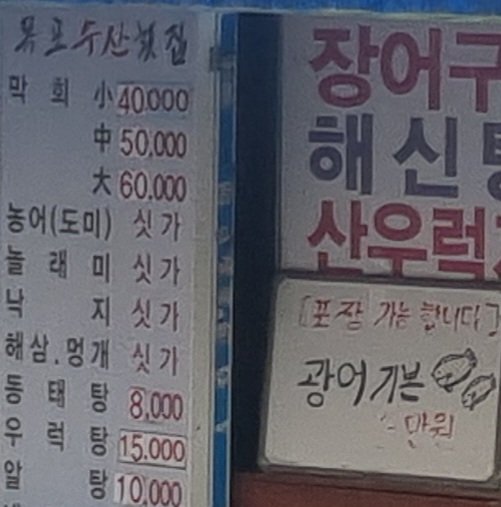 목포수산횟집
막 회 小 40.000
中 50.000
大 60.000
농어(도미) 싯가
놀 래 미 싯가
낙 지 싯가
해삼.멍개 싯가
동 태 탕 8,000
우 럭 탕 15.000
알 탕 10,000
장어구
해신탕
산우럭
[포장 가능 합니다]
광어 기본
만원